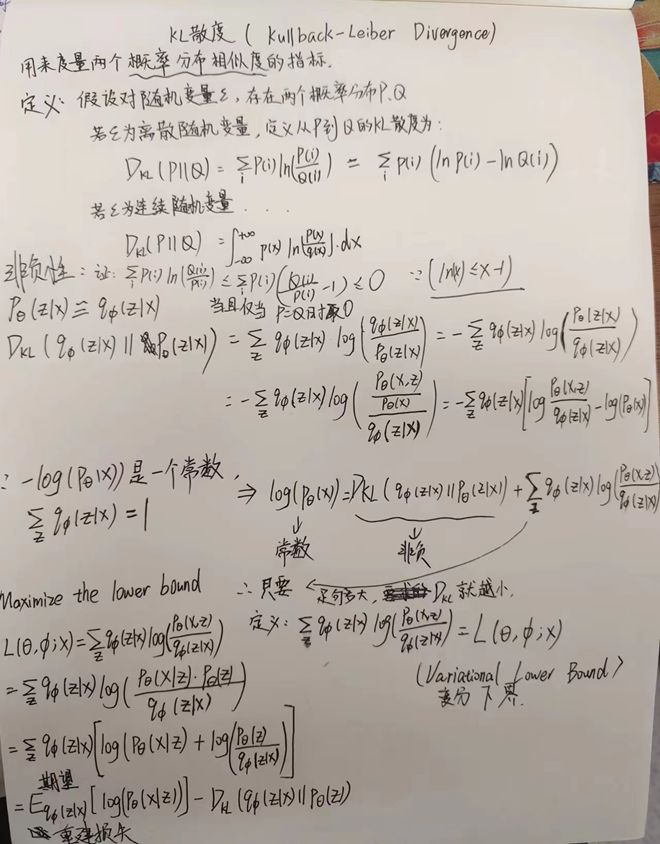 KL散度 ( Kullback-Leiber Divergence)
用来度量两个概率分布相似度的指标.
定义: 假设对随机变量ξ, 存在两个概率分布P.Q
若ξ为离散随机变量, 定义从P到Q的KL散度为:
D_KL(P||Q) = ∑_i P(i) ln(P(i)/Q(i)) = ∑_i P(i) (ln P(i) - ln Q(i))
若ξ为连续随机变量 . . .
D_KL(P||Q) = ∫_{-∞}^{+∞} p(x) ln(p(x)/q(x)) · dx
非负性: 证: ∑_i P(i) ln(Q(i)/P(i)) ≤ ∑_i P(i) (Q(i)/P(i) - 1) ≤ 0 ∵ (ln(x) ≤ x-1)
当且仅当 P=Q时取0
P_θ(z|x) ≃ q_φ(z|x)
D_KL(q_φ(z|x) || P_θ(z|x)) = ∑_z q_φ(z|x) · log(q_φ(z|x)/P_θ(z|x)) = -∑_z q_φ(z|x) log(P_θ(z|x)/q_φ(z|x))
= -∑_z q_φ(z|x) log((P_θ(x,z)/P_θ(x))/q_φ(z|x)) = -∑_z q_φ(z|x) [log P_θ(x,z)/q_φ(z|x) - log(P_θ(x))]
∵ -log(P_θ(x)) 是一个常数,
∑_z q_φ(z|x) = 1
⇒ log(P_θ(x)) = D_KL(q_φ(z|x) || P_θ(z|x)) + ∑_z q_φ(z|x) log(P_θ(x,z)/q_φ(z|x))
↓ 常数 ↓ 非负
Maximize the lower bound ∴ 只要 足够大, D_KL 就越小.
定义: ∑_z q_φ(z|x) log(P_θ(x,z)/q_φ(z|x)) = L(θ,φ;x)
(Variational Lower Bound)
变分 下界.
L(θ,φ;x) = ∑_z q_φ(z|x) log(P_θ(x,z)/q_φ(z|x))
= ∑_z q_φ(z|x) log(P_θ(x|z) · P_θ(z)/q_φ(z|x))
= ∑_z q_φ(z|x) [log(P_θ(x|z) + log(P_θ(z)/q_φ(z|x))]
期望
= E_{q_φ(z|x)} [log(P_θ(x|z))] - D_KL(q_φ(z|x) || P_θ(z))
重建损失